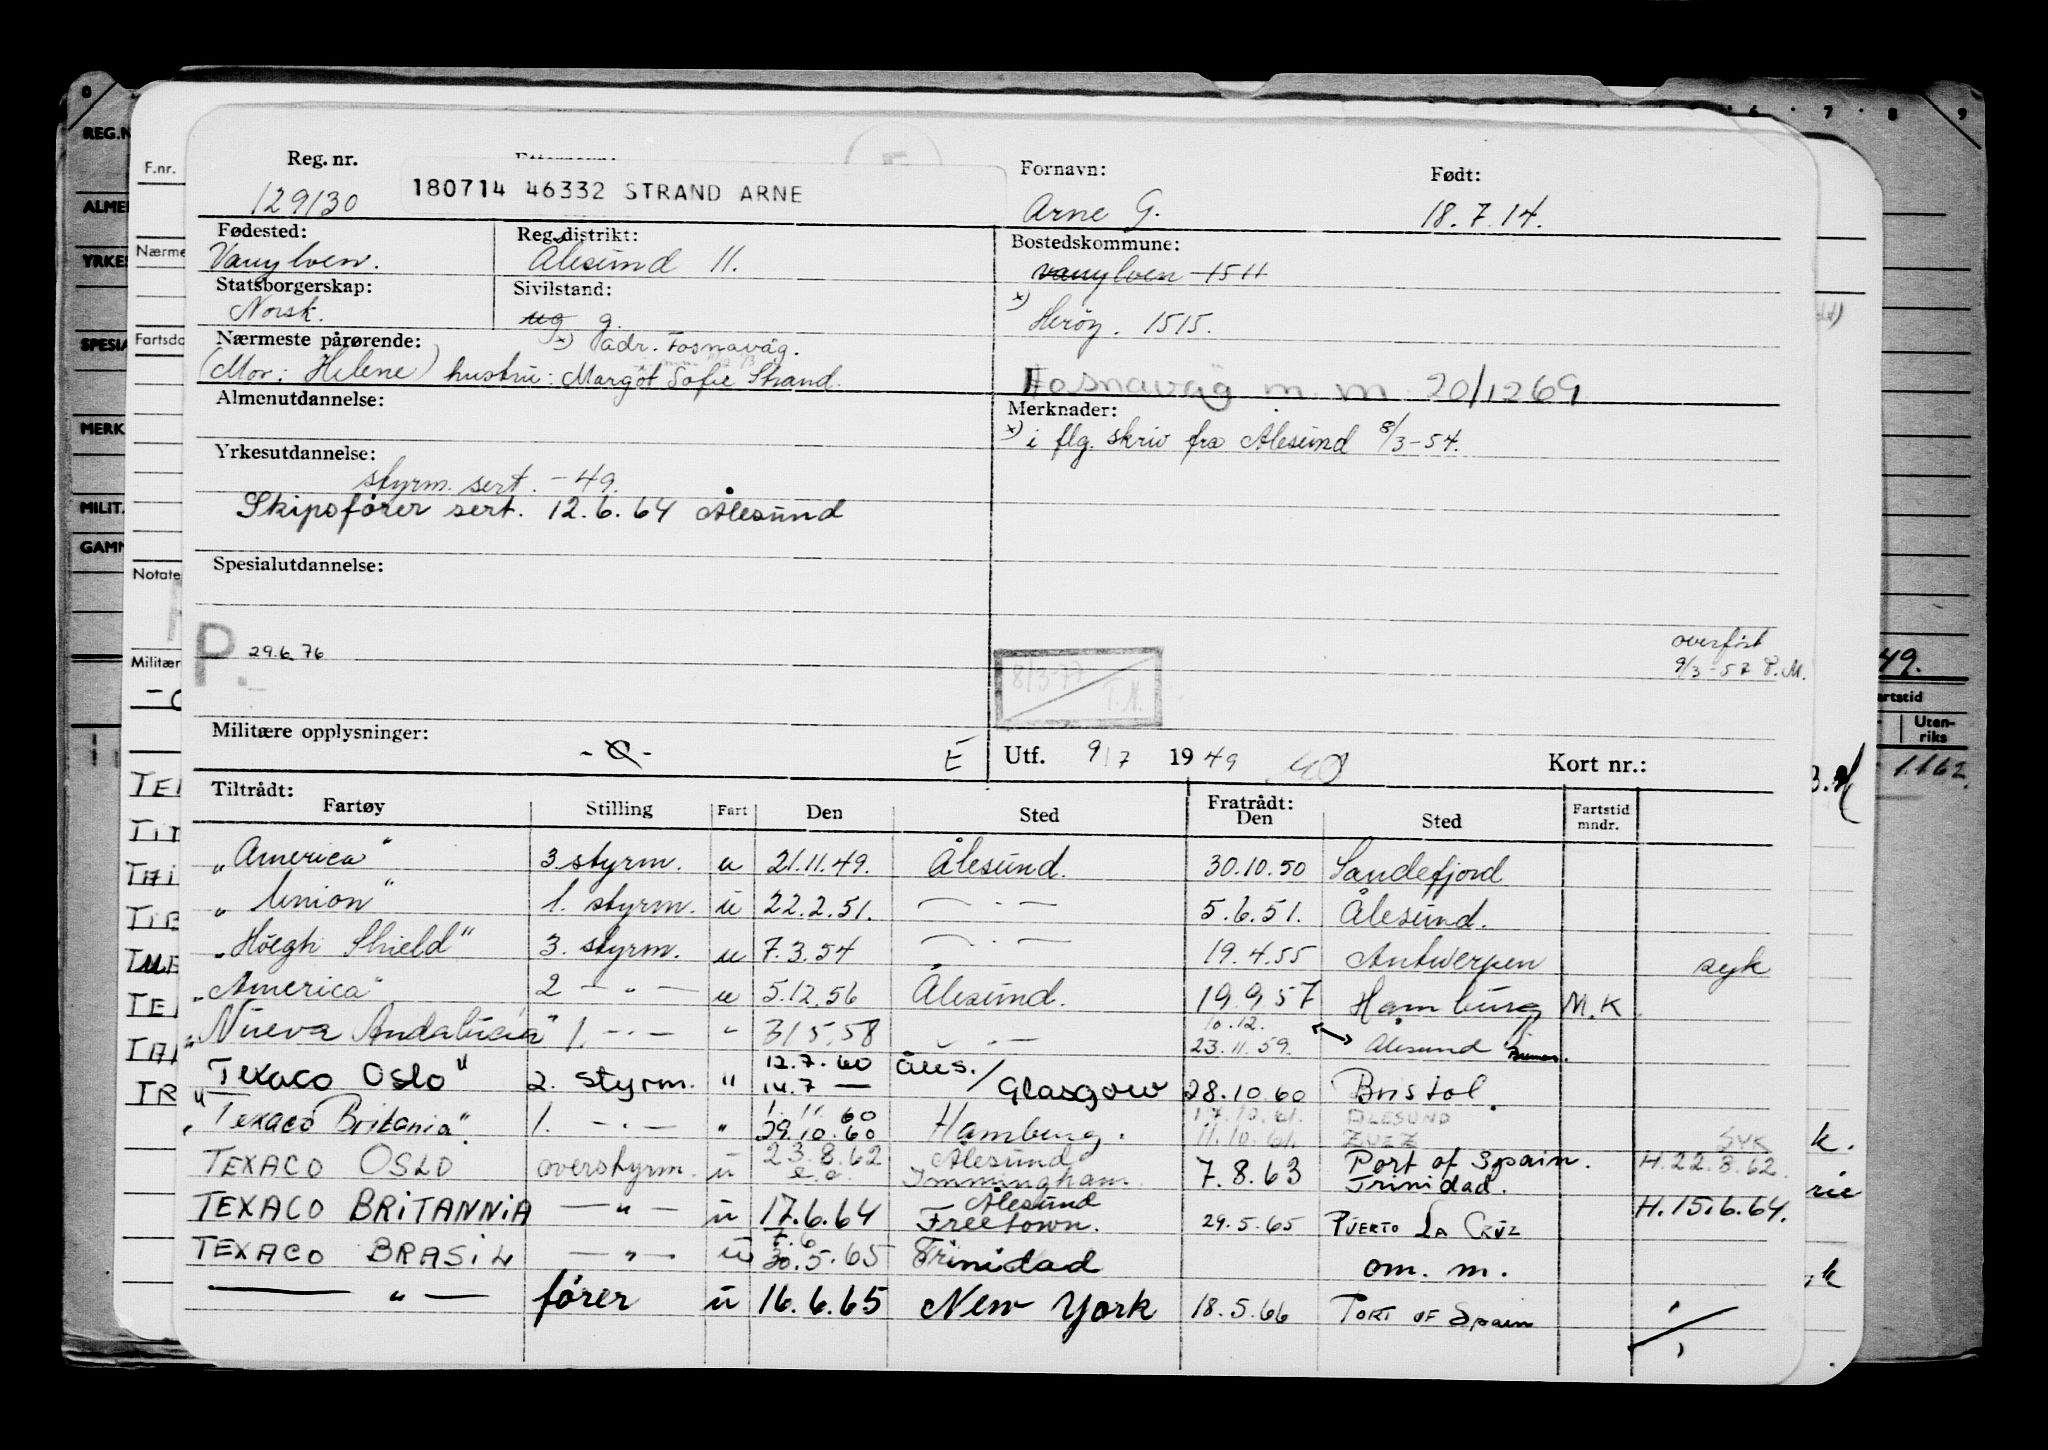 Reg. nr.
Fornavn:
Født:
129130
180714 46332 STRAND ARNE
Arne G.
18.7.14.
Fødested:
Reg. distrikt:
Bostedskommune:
Vanylven.
Ålesund 11.
vanylven 1511
Statsborgerskap:
Sivilstand:
Norsk.
ug g.
x) Herøy. 1515.
Nærmeste pårørende:
x) adr. Fosnavåg.
(Mor: Helene) hustru: Margot Sofie Strand.
Fosnavåg m. m 20/1269
Almenutdannelse:
Merknader:
x) i flg. skriv fra Ålesund 8/3-54.
Yrkesutdannelse:
styrm. sert. -49.
Skipsfører sert. 12.6.64 Ålesund
Spesialutdannelse:
P. 29.6.76
8/3-77 T.M.
overført
9/3-57 P.M.
Militære opplysninger:
E
Utf. 9/7 1949
Kort nr.:
Tiltrådt:
Fartøy Stilling Fart Den Sted
Fratrådt:
Den Sted
Fartstid
mndr.
„America" 3 styrm. u 21.11.49. Ålesund. 30.10.50 Sandefjord
„Union" 1. styrm. u 22.2.51. — · — 5.6.51. Ålesund.
„Høegh Shield" 3. styrm. u 7.3.54 — · — 19.4.55 Antwerpen syk
„America" 2 — " — u 5.12.56 Ålesund. 19.9.57 Hamburg M.K.
„Nueva Andalucia" 1. — · — " 31/5.58 — · — 10.12.
23.11.59. Ålesund
„Texaco Oslo" 2. styrm. " 12.7.60 Åles./
14.7 — Glasgow 28.10.60 Bristol.
„Texaco Britania". 1. — · — " 1.11.60
29.10.60 Hamburg. 17.10.61. ÅLESUND
11.10.61. ZUEZ SYK
TEXACO OSLO overstyrm. u 23.8.62 Ålesund
Immingham. 7.8.63 Port of Spain.
Trinidad. H.22.8.62.
TEXACO BRITANNIA — " — u 17.6.64 Ålesund
Freetown. 29.5.65 PUERTO LA CRUZ H.15.6.64.
TEXACO BRASIL — " — u 30.5.65 Trinidad om. m.
— " — fører u 16.6.65 New York 18.5.66 PORT OF Spain
REG.N
ALMEN
YRKES
SPESIA
MERK
MILIT.
GAMM
F.nr.
Nærme
Fartsdo
Notate
Militær
49.
artstid
Uten-
riks
1.162.